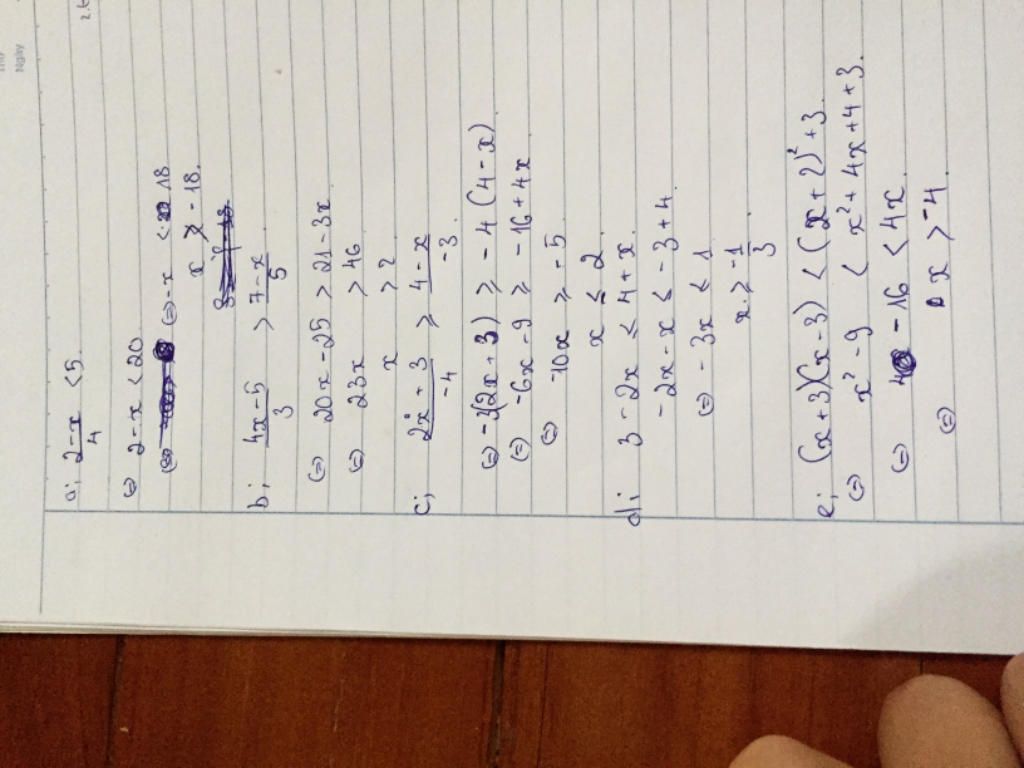 Ngày
a; (2-x)/4 < 5.
(=) 2-x < 20.
(=) -x < 18
x > -18.
b; (4x-5)/3 > (7-x)/5
(=) 20x - 25 > 21 - 3x
(=) 23x > 46
x > 2
c; (2x+3)/-4 ≥ (4-x)/-3.
(=) -3(2x+3) ≥ -4(4-x)
(=) -6x - 9 ≥ -16 + 4x
(=) -10x ≥ -5
x ≤ 2
d; 3 - 2x ≤ 4 + x.
-2x - x ≤ -3 + 4
(=) -3x ≤ 1
x ≥ -1/3.
e; (x+3)(x-3) < (x+2)² + 3.
(=) x² - 9 < x² + 4x + 4 + 3.
(=) -16 < 4x.
(=) x > -4